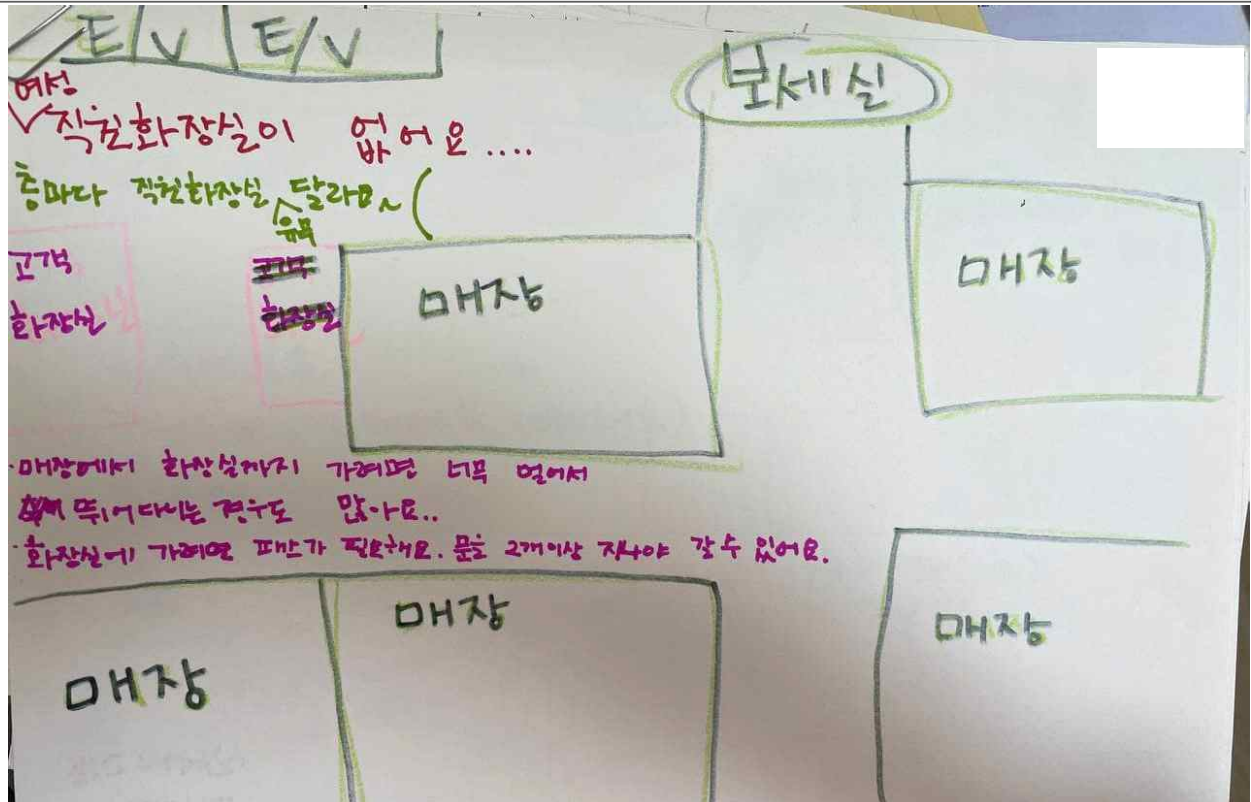 E/V E/V
보세실
여성
직원화장실이 없어요....
층마다 직원화장실 달라요~
유무
고객
화장실
고객
화장실
매장
매장
·매장에서 화장실까지 가려면 너무 멀어서
뛰어다니는 경우도 많아요..
·화장실에 가려면 패스가 필요해요. 문을 2개이상 지나야 갈 수 있어요.
매장
매장
매장